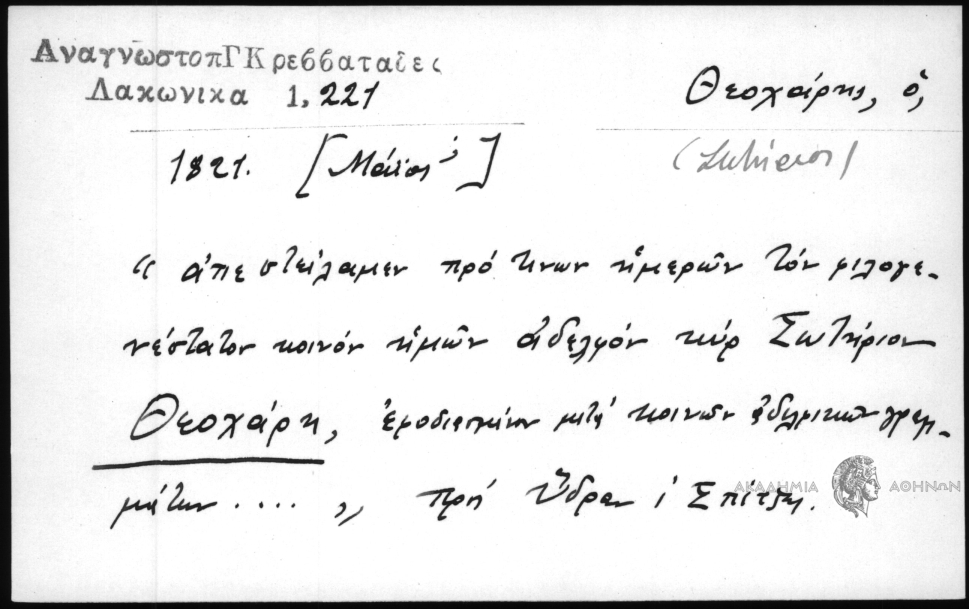 ΑναγνωστοπΓΚρεββαταδες
Λακωνικα 1, 221
Θεοχάρης, ὁ,
1821. [Μάϊος]
(Σωτήριος)
« ἀπεστείλαμεν πρό τινων ἡμερῶν τόν φιλογε-
νέστατον κοινόν ἡμῶν ἀδελφόν κύρ Σωτήριον
Θεοχάρη, ἐφοδιασμένον μετά κοινῶν γραμ-
μάτων .... „ πρός Ὕδραν Σπέτζες.
ΑΚΑΔΗΜΙΑ ΑΘΗΝΩΝ